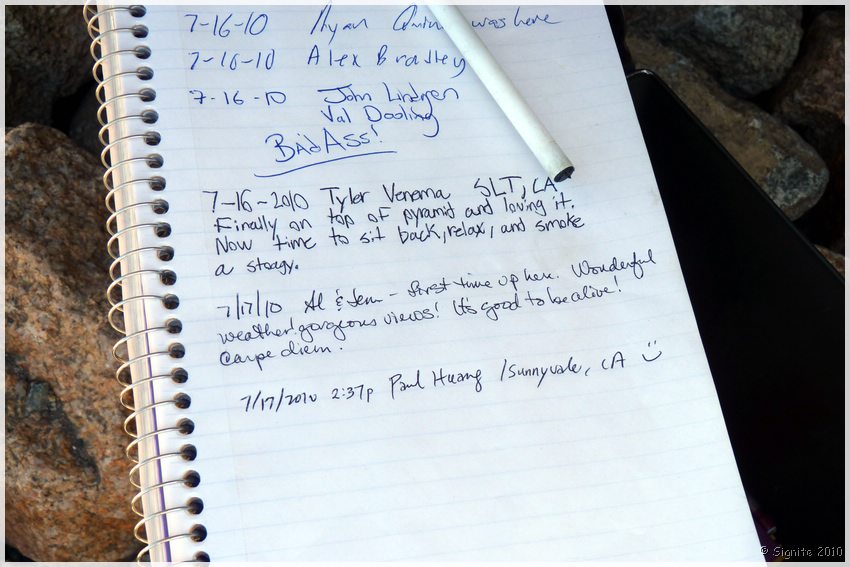 7-16-10 Ryan Quinn was here
7-16-10 Alex Bradley
7-16-10 John Lindgren
Val Dooling
BadAss!
7-16-2010 Tyler Venema SLT, CA
Finally on top of pyramid and loving it.
Now time to sit back, relax, and smoke
a stoagy.
7/17/10 Al & Jenn - first time up here. Wonderful
weather! gorgeous views! It's good to be alive!
Carpe diem.
7/17/2010 2:37p Paul Huang / Sunnyvale, CA
© Signite 2010